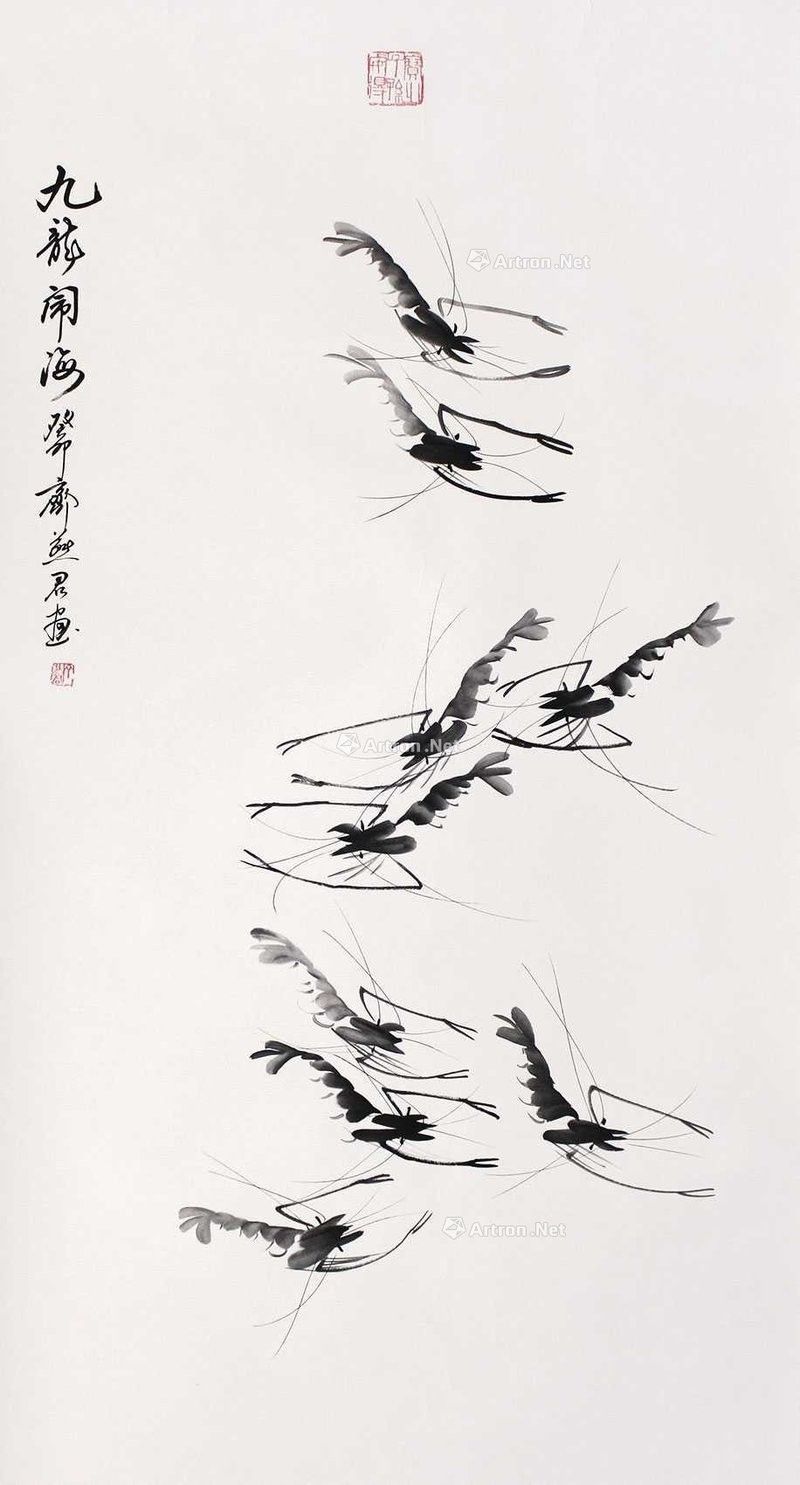 九龍闹海癸卯燕君畫
Artron.Net
Artron.Net
Artron.Net